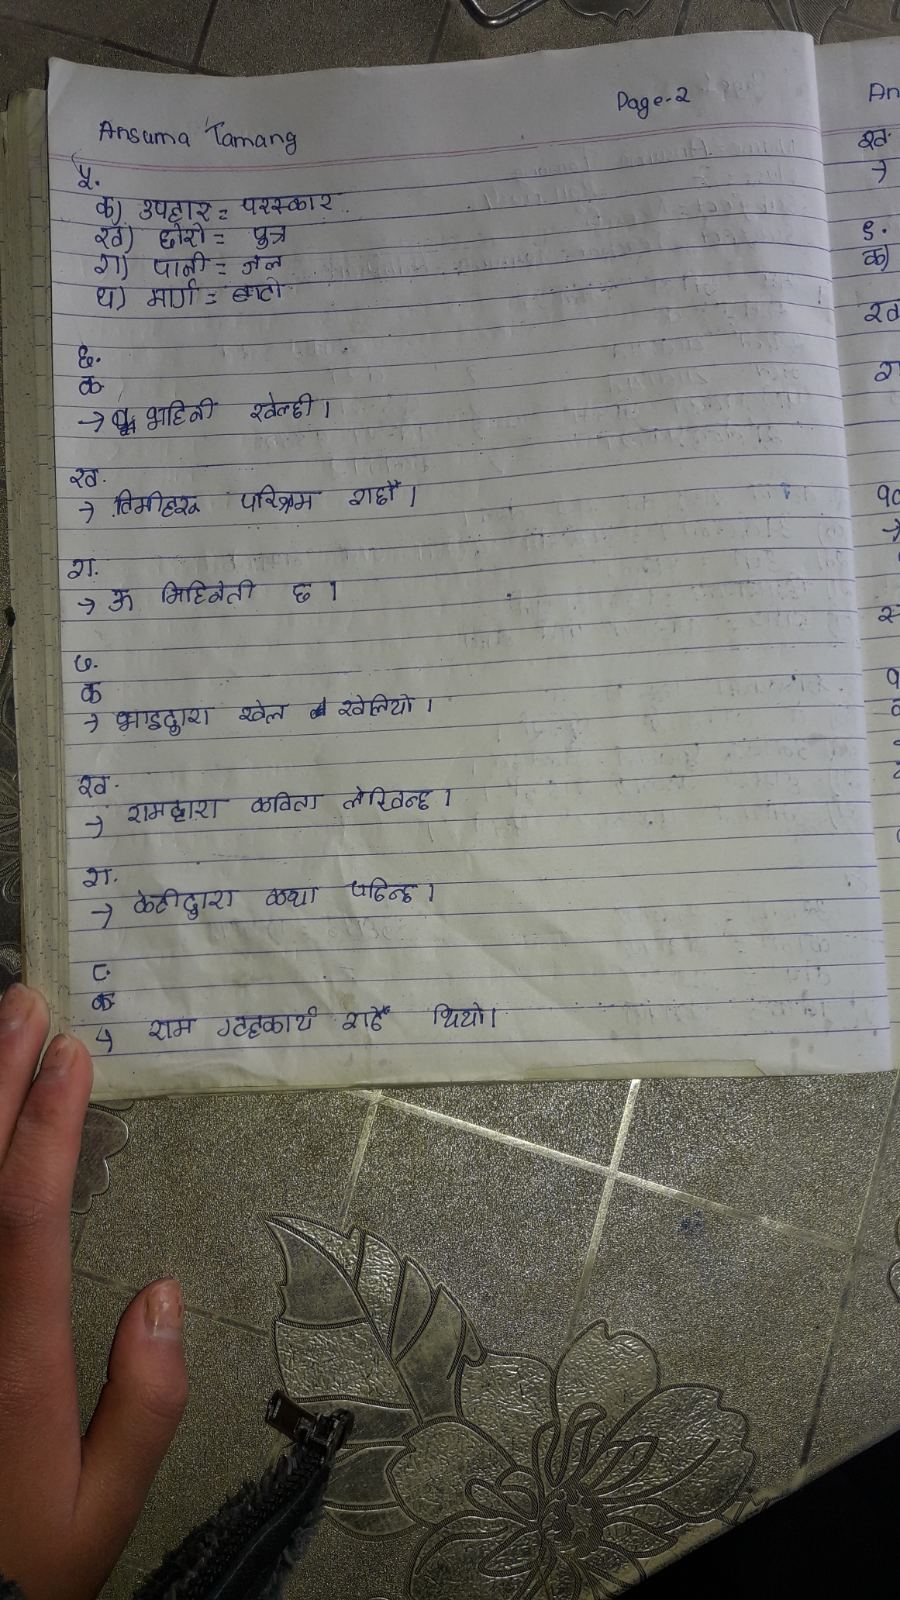 Ansuma Tamang Page-2
५.
क) उपहार = परस्कार
ख) छोरो = पुत्र
ग) पानी = जल
घ) मार्ग = बाटो
६.
क
→ बहिनी खेल्छी।
ख.
→ तिमीहरू परिश्रम गर्छौ।
ग.
→ ऊ मिहिनेती छ।
७.
क
→ भाइद्वारा खेल खेलियो।
ख.
→ रामद्वारा कविता लेखिन्छ।
ग.
→ केटीद्वारा कथा पढिन्छ।
८.
क
→ राम गृहकार्य गर्दै थियो।
An
ख.
→
९.
क)
ख
ग
१०
→